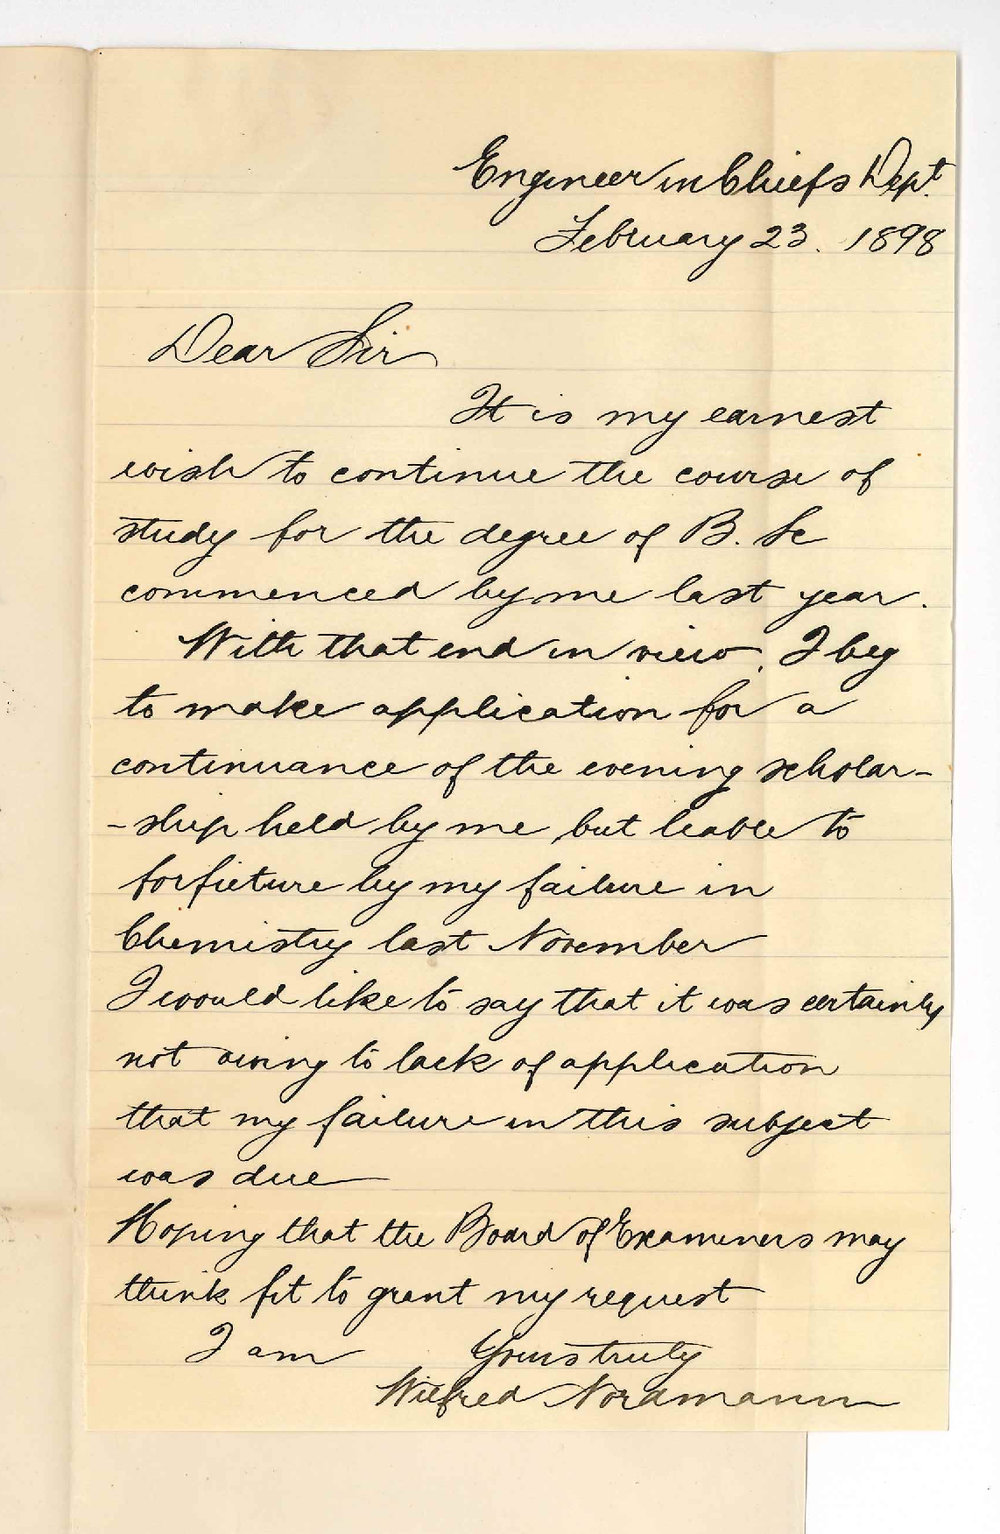 Engineer in Chiefs Dept.
February 23. 1898
Dear Sir
It is my earnest
wish to continue the course of
study for the degree of B. Sc
commenced by me last year.
With that end in view, I beg
to make application for a
continuance of the evening scholar-
-ship held by me, but leable to
forfieture by my failure in
Chemistry last November
I would like to say that it was certainly
not owing to lack of application
that my failure in this subject
was due
Hoping that the Board of Examiners may
think fit to grant my request
I am Yours truly
Wilfred Nordmann